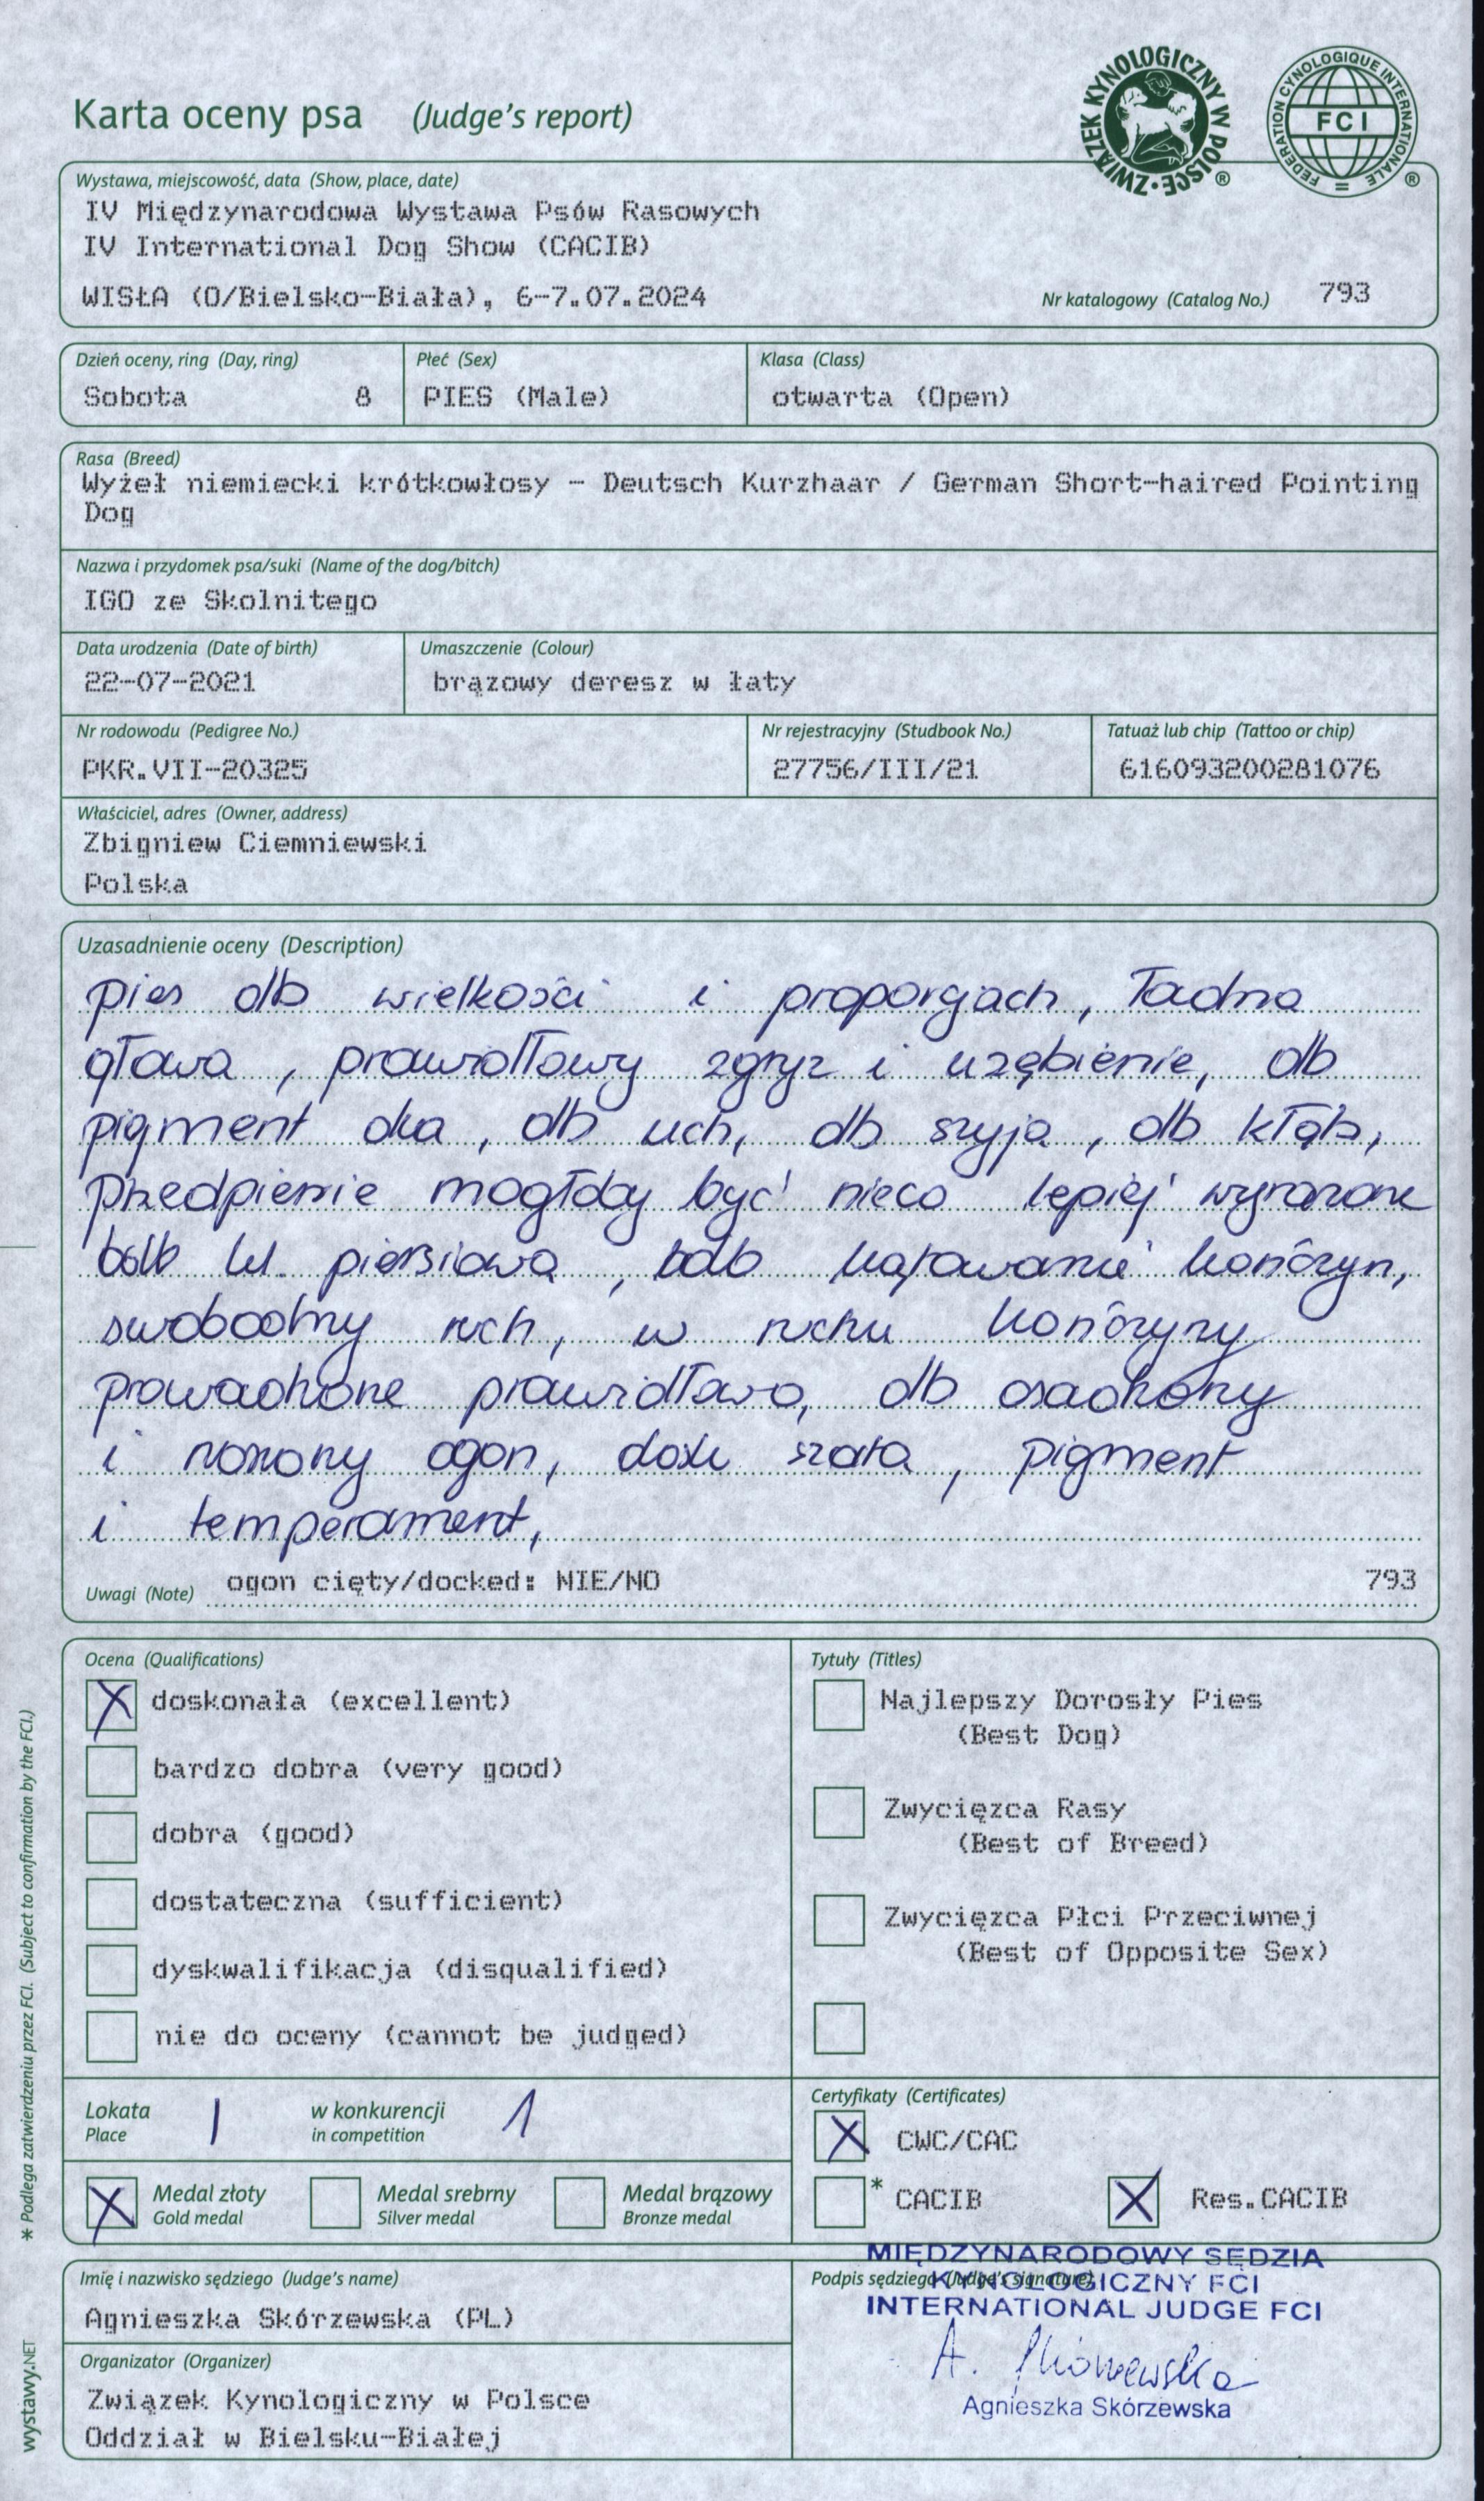 Karta oceny psa (Judge's report)
ZWIĄZEK KYNOLOGICZNY W POLSCE ®
FEDERATION CYNOLOGIQUE INTERNATIONALE FCI ®
Wystawa, miejscowość, data (Show, place, date)
IV Międzynarodowa Wystawa Psów Rasowych
IV International Dog Show (CACIB)
WISŁA (O/Bielsko-Biała), 6-7.07.2024
Nr katalogowy (Catalog No.) 793
Dzień oceny, ring (Day, ring) Płeć (Sex) Klasa (Class)
Sobota 8 PIES (Male) otwarta (Open)
Rasa (Breed)
Wyżeł niemiecki krótkowłosy - Deutsch Kurzhaar / German Short-haired Pointing
Dog
Nazwa i przydomek psa/suki (Name of the dog/bitch)
IGO ze Skolnitego
Data urodzenia (Date of birth) Umaszczenie (Colour)
22-07-2021 brązowy deresz w łaty
Nr rodowodu (Pedigree No.) Nr rejestracyjny (Studbook No.) Tatuaż lub chip (Tattoo or chip)
PKR.VII-20325 27756/III/21 616093200281076
Właściciel, adres (Owner, address)
Zbigniew Ciemniewski
Polska
Uzasadnienie oceny (Description)
pies db wielkości i proporcjach, ładna
głowa, prawidłowy zgryz i uzębienie, db
pigment oka, db uch, db szyja, db kłąb,
przedpiersie mogłoby być nieco lepiej wyrażone
bdb kl. piersiowa, bdb kątowanie kończyn,
swobodny ruch, w ruchu kończyny
prowadzone prawidłowo, db osadzony
i noszony ogon, dosk szata, pigment
i temperament,
Uwagi (Note) ogon cięty/docked: NIE/NO 793
Ocena (Qualifications)
X doskonała (excellent)
bardzo dobra (very good)
dobra (good)
dostateczna (sufficient)
dyskwalifikacja (disqualified)
nie do oceny (cannot be judged)
Tytuły (Titles)
Najlepszy Dorosły Pies
(Best Dog)
Zwycięzca Rasy
(Best of Breed)
Zwycięzca Płci Przeciwnej
(Best of Opposite Sex)
Lokata I w konkurencji 1
Place in competition
X Medal złoty Medal srebrny Medal brązowy
Gold medal Silver medal Bronze medal
Certyfikaty (Certificates)
X CWC/CAC
* CACIB X Res.CACIB
Imię i nazwisko sędziego (Judge's name)
Agnieszka Skórzewska (PL)
Organizator (Organizer)
Związek Kynologiczny w Polsce
Oddział w Bielsku-Białej
Podpis sędziego (Judge's signature)
MIĘDZYNARODOWY SĘDZIA
KYNOLOGICZNY FCI
INTERNATIONAL JUDGE FCI
A. Skórzewska
Agnieszka Skórzewska
* Podlega zatwierdzeniu przez FCI. (Subject to confirmation by the FCI.)
wystawy.NET